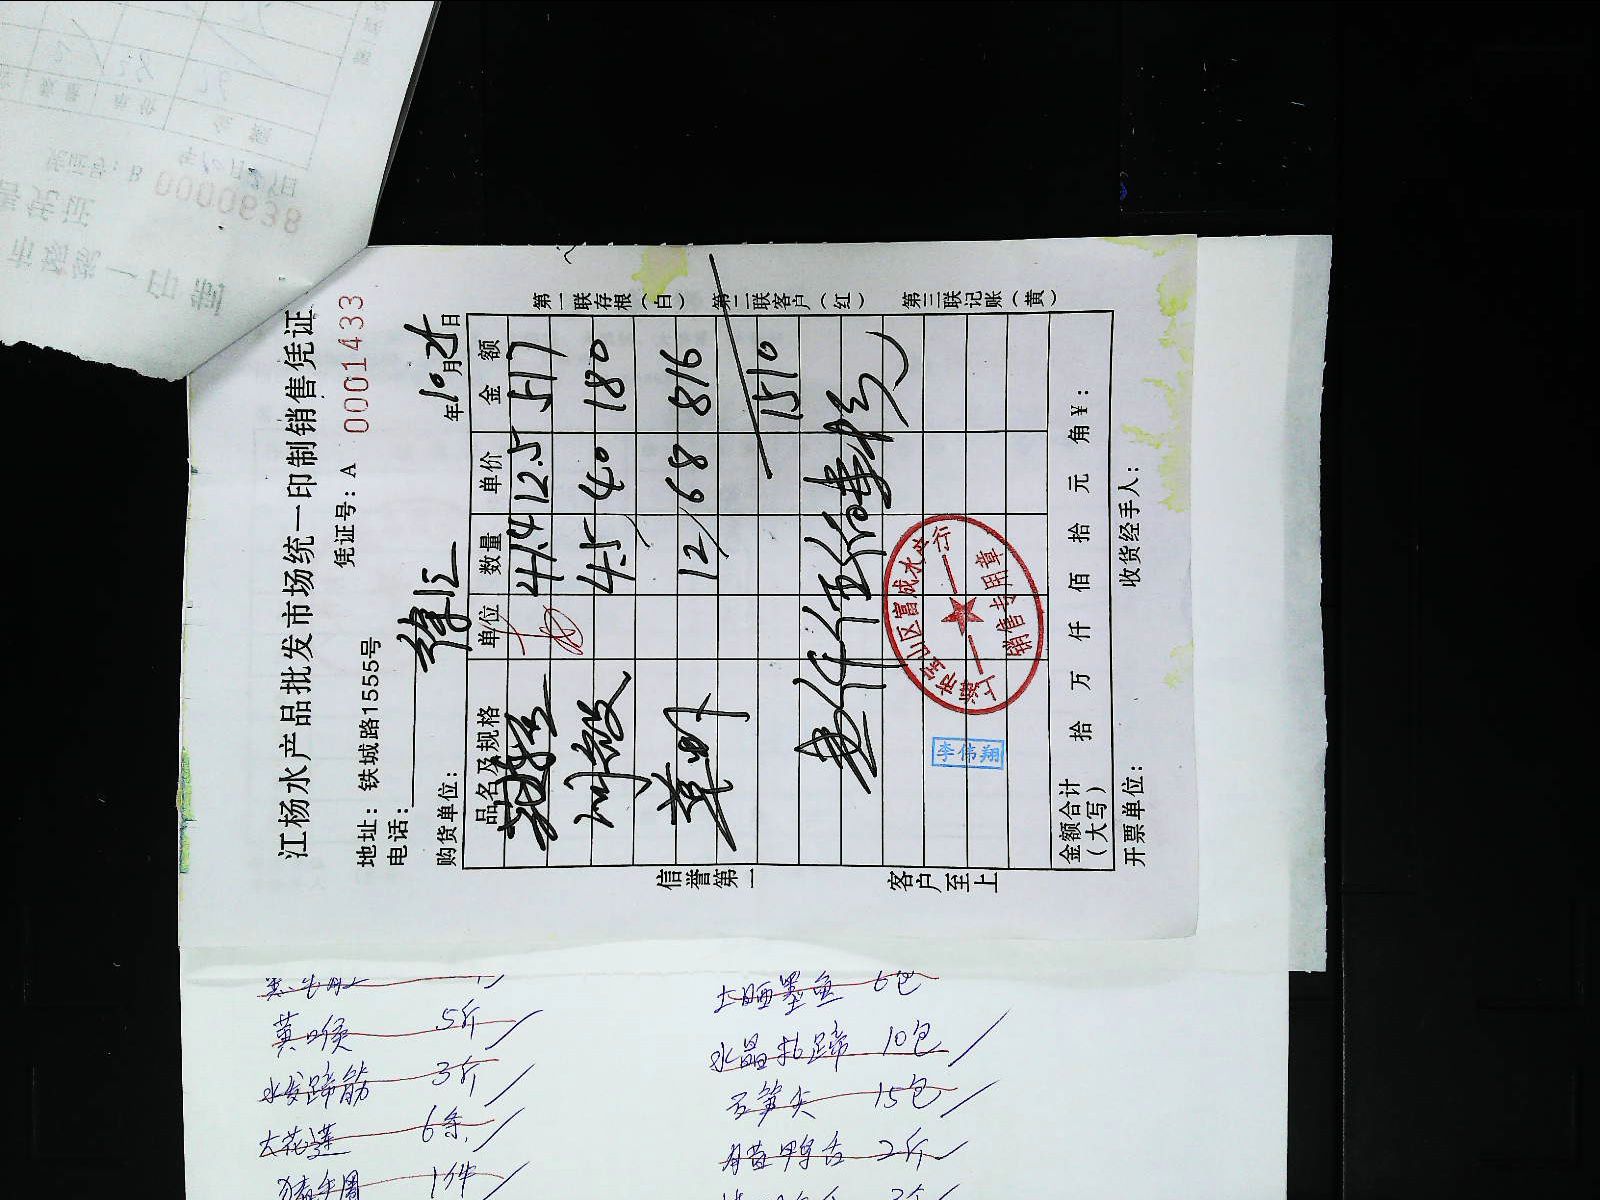 江杨水产品批发市场统一印制销售凭证
凭证号：A 0001433
地址：铁城路1555号
电话：
购货单位： 徐汇
年10月25日
品名及规格 单位 数量 单价 金额
41.4 12.5 517
4.5 40 180
草虾 12 68 816
1510
第一联存根（白） 第二联客户（红） 第三联记账（黄）
信誉第一 客户至上
上海市宝山区富成水产行
销售专用章
李伟翔
金额合计（大写） 拾 万 仟 佰 拾 元 角 ¥：
开票单位： 收货经手人：
0000638
凭证号：B
年10月27日
市场统一印制
售凭证
黄喉 5斤
水发蹄筋 3斤
大花莲 6条
1件
土晒墨鱼 6包
水晶扎蹄 10包
石笋尖 15包
鸭舌 2斤